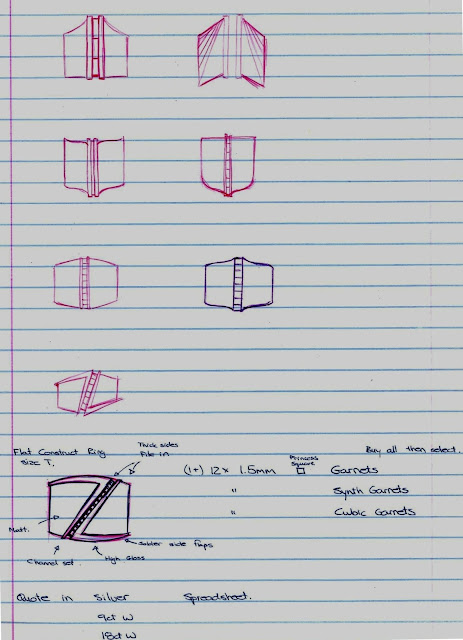 Flat Construct Ring
Size T.
Thick sides
File in
Buy all then select.
(1+) 12 x 1.5mm
Princess
Square
Garnets
" Synth Garnets
" Cubic Garnets
Matt.
Channel set.
High Gloss
Solder side flaps
Quote in Silver Spreadsheet.
9ct W
18ct W